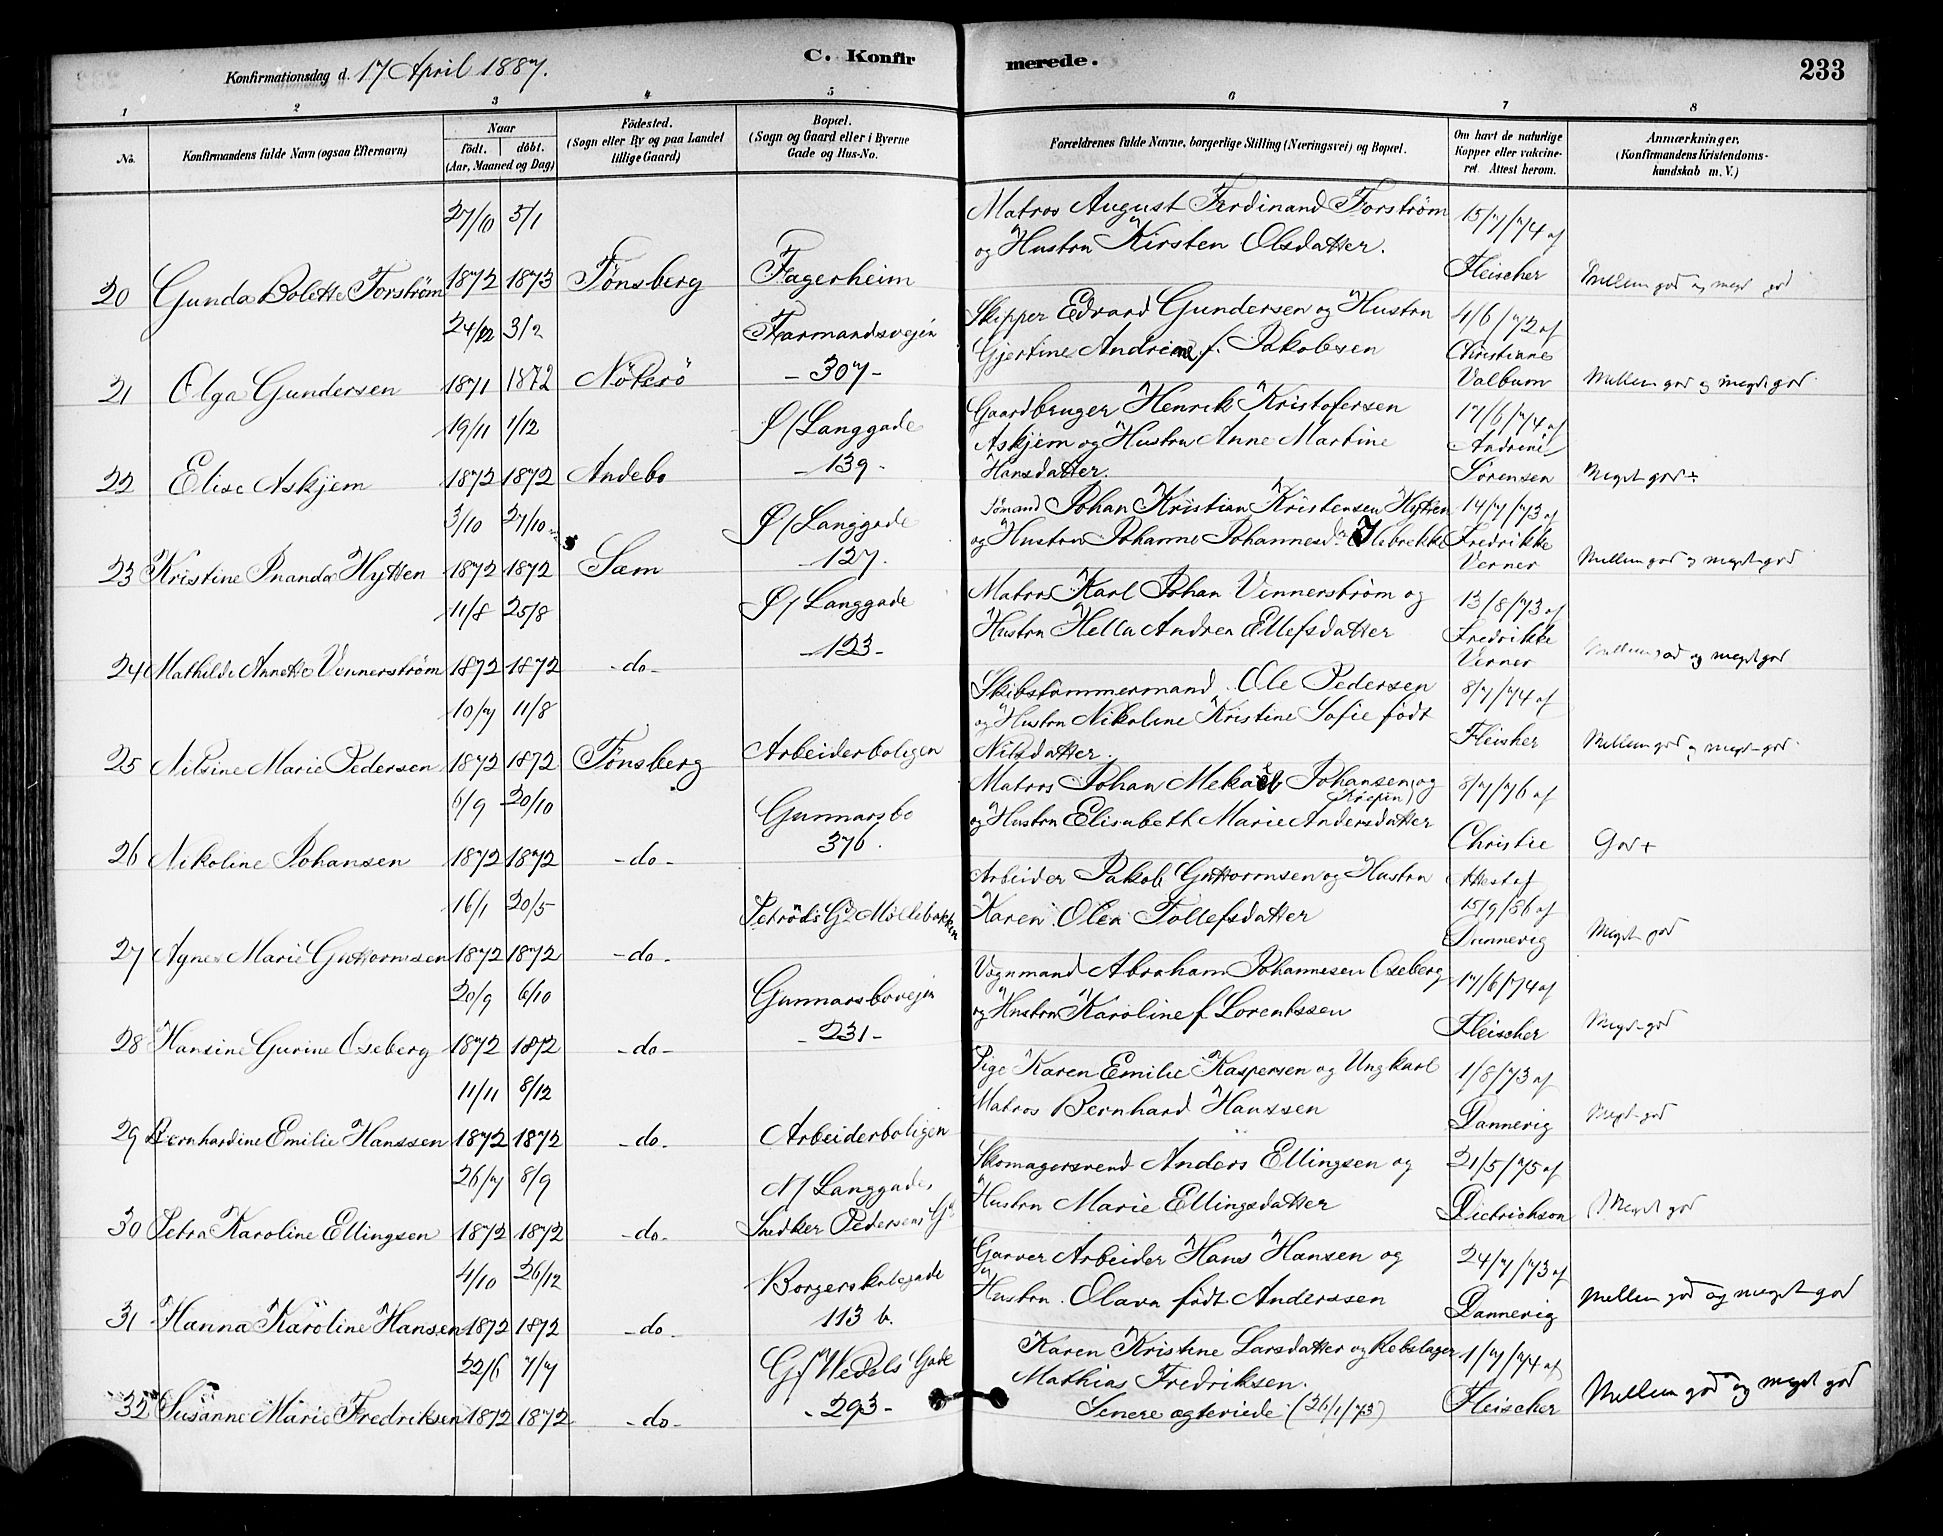 Konfirmationsdag d. 17 April 1887.
C. Konfirmerede.
233
1 2 3 4 5 6 7 8
No.
Konfirmandens fulde Navn (ogsaa Efternavn)
Naar
födt. döbt.
(Aar, Maaned og Dag)
Födested.
(Sogn eller By og paa Landet tillige Gaard)
Bopæl.
(Sogn og Gaard eller i Byerne Gade og Hus-No.
Forældrenes fulde Navne, borgerlige Stilling (Næringsvei) og Bopæl.
Om havt de naturlige Kopper eller vakcineret. Attest herom.
Anmærkninger,
(Konfirmandens Kristendomskundskab m. V.)
27/10 3/1 Matros August Ferdinand Forström 15/7/74 af
og Hustru Kirsten Olsdatter.
20 Gunda Bolette Forström 1872 1873 Tönsberg Fagerheim Fleischer Mellem god og meget god
24/12 3/2 Farmandsvejen Skipper Edvard Gundersen og Hustru 4/6/72 af
Gjertine Andrine f. Jakobsen Christiane
21 Olga Gundersen 1871 1872 Nöterö - 307 - Valbum Mellem god og meget god
19/11 1/12 Ø/Langgade Gaardbruger Henrik Kristofersen 17/6/74 af
Askjem og Hustru Anne Martine Andrine
22 Elise Askjem 1872 1872 Andebo - 139 - Hansdatter. Sörensen Meget god ÷
3/10 27/10 Ø/Langgade Sömand Johan Kristian Kristensen Hytten 14/7/73 af
og Hustru Johanne Johannesd. Fredrikke
23 Kristine Inanda Hytten 1872 1872 Sem - 127. Verner Mellem god og meget god
11/8 25/8 Ø/Langgade Matros Karl Johan Vennerström og 13/8/73 af
Hustru Hella Andrea Ellefsdatter Fredrikke
24 Mathilde Annette Vennerström 1872 1872 - do - - 123 - Verner Mellem god og meget god
10/7 11/8 Skibstømmermand Ole Pedersen 8/7/74 af
og Hustru Nikoline Kristine Sofie født
25 Nilsine Marie Pedersen 1872 1872 Tönsberg Arbeiderboligen Nilsdatter. Fleischer Mellem god og meget god
6/9 20/10 Gunnarsbo Matros Johan Mekael Johansen og 8/7/76 af
og Hustru Elisabeth Marie Andersdatter
26 Nikoline Johansen 1872 1872 - do - 376. Christie God +
16/1 20/5 Arbeider Jakob Guttormsen og Hustru Attest af
Peterödts Gd Möllebakken Karen Olea Tollefsdatter 15/9/86 af
27 Agnes Marie Guttormsen 1872 1872 - do - Dannevig Meget god
20/9 6/10 Gunnarsbovejen Vognmand Abraham Johannesen Oseberg 17/6/74 af
og Hustru Karoline f. Lorentssen
28 Hansine Gurine Oseberg 1872 1872 - do - - 231 - Fleischer Meget god
11/11 8/12 Pige Karen Emilie Kaspersen og Ungkarl 1/8/73 af
Matros Bernhard Hanssen
29 Bernhardine Emilie Hanssen 1872 1872 - do - Arbeiderboligen Dannevig Meget god
26/7 8/9 N/Langgade, Skomagersvend Anders Ellingsen og 21/5/75 af
Hustru Marie Ellingsdatter
30 Petra Karoline Ellingsen 1872 1872 - do - Snedker Pedersens Gd Dietrichson Meget god
4/10 26/12 Borgerskolegade Garver Arbeider Hans Hansen og 24/7/73 af
Hustru Olava født Anderssen
31 Hanna Karoline Hansen 1872 1872 - do - 113 b. Dannevig Mellem god og meget god
22/6 7/7 Gf Wedels Gade Karen Kristine Larsdatter og Rebslager 1/7/74 af
Mathias Fredriksen.
32 Susanne Marie Fredriksen 1872 1872 - do - - 293 - Senere ægteviede (26/1/73) Fleischer Mellem god og meget god